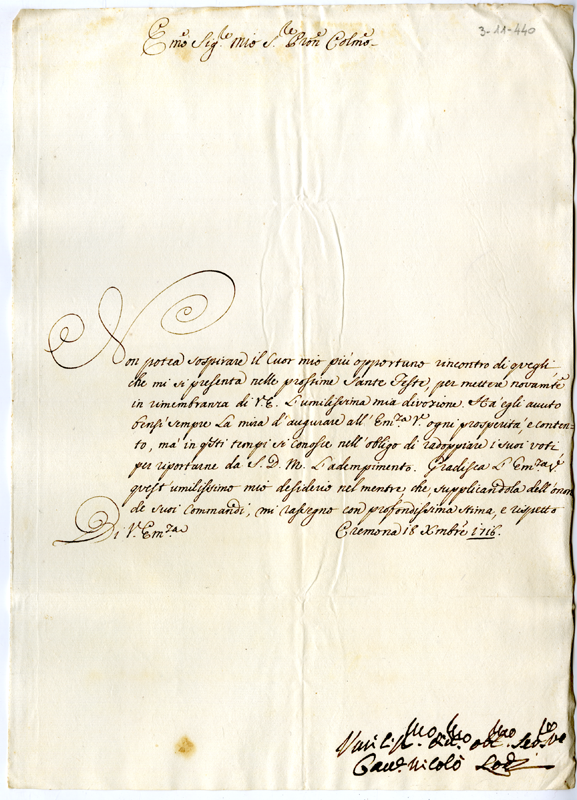 3-11-440
Emo Sigre mio Sre Pron Colmo
Non potea sospirare il Cuor mio piú opportuno rincontro di quegli
che mi si presenta nelle prossime Sante Feste, per mettere novamte
in rimembranza di V.E. L'umilissima mia divozione. Há egli avuto
bensì sempre La mira d'augurare all'Emza Va ogni prosperitá, e conten-
to, má in qsti tempi si conosce nell'obligo di radoppiare i suoi voti
per riportarne da S. D. M. L'adempimento. Gradisca L'Emza Va
quest'umilissimo mio desiderio nel mentre che, supplicandola dell'onor
de suoi Commandi, mi rassegno con profondissima stima, e rispetto
Di V. Emza Cremona 18 Xmbre 1716.
Servre
Cavr Nicolò Lodi